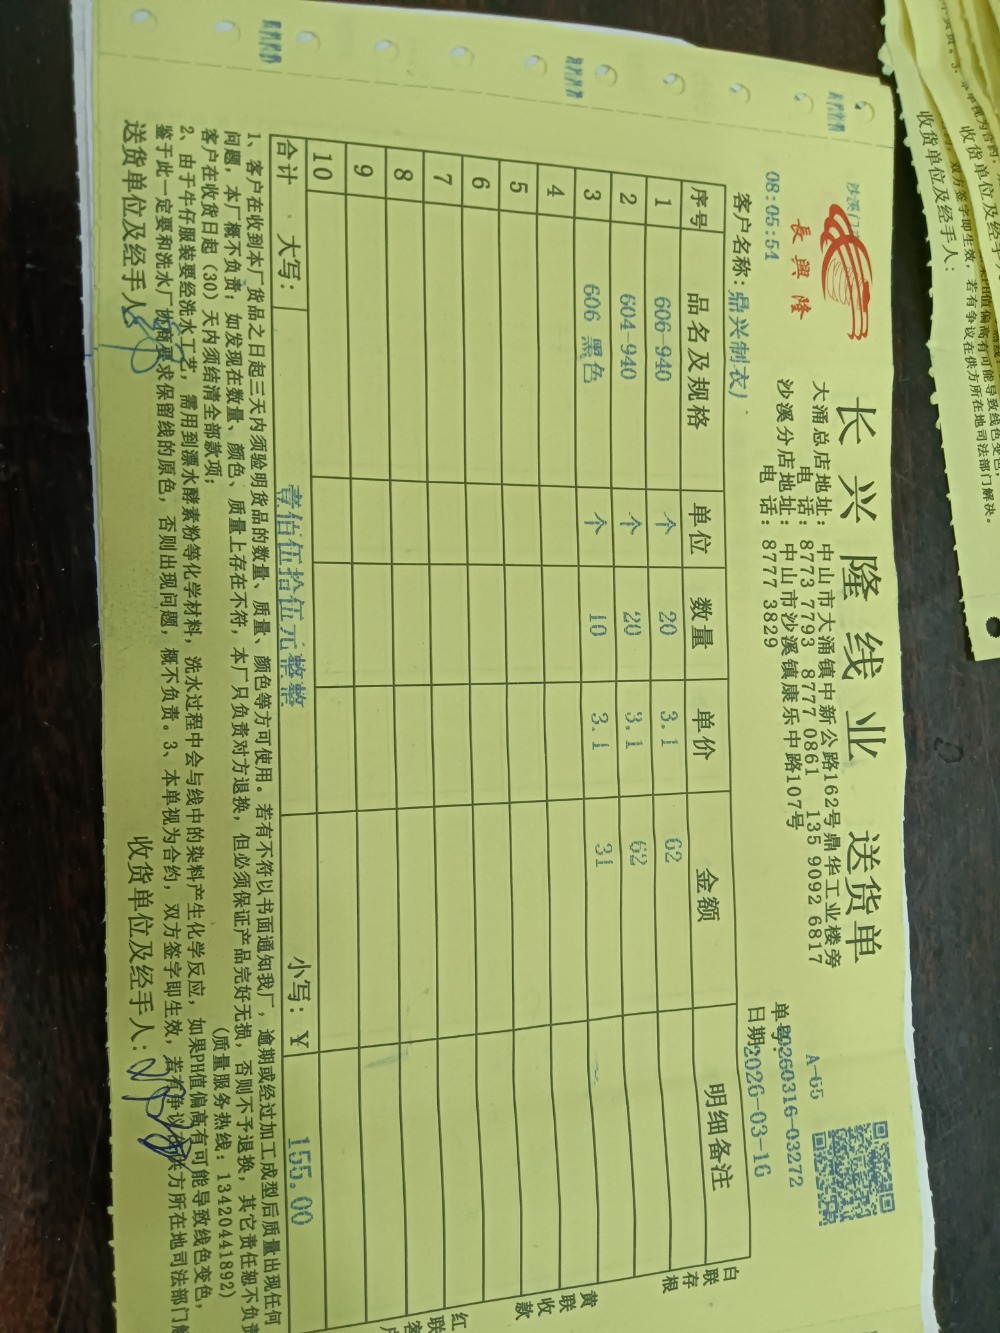 长兴隆线业 送货单
長興隆
大涌总店地址：中山市大涌镇中新公路162号鼎华工业楼旁
电话：8773 7793 8777 0861 135 9092 6817
沙溪分店地址：中山市沙溪镇康乐中路107号
电话：8777 3829
A-65
08:05:54
单号：20260316-03272
客户名称：鼎兴制衣厂
日期：2026-03-16
序号 品名及规格 单位 数量 单价 金额 明细备注
1 606-940 个 20 3.1 62
2 604-940 个 20 3.1 62
3 606 黑色 个 10 3.1 31
4
5
6
7
8
9
10
合计 大写：壹佰伍拾伍元整整 小写：¥ 155.00
白联存根
黄联收款
红联客户
1、客户在收到本厂货品之日起三天内须验明货品的数量、质量、颜色等方可使用。若有不符以书面通知我厂，逾期或经过加工成型后质量出现任何
问题，本厂概不负责；如发现在数量、颜色、质量上存在不符，本厂只负责对方退换，但必须保证产品完好无损，否则不予退换，其它责任恕不负责
客户在收货日起（30）天内须结清全部款项；
（质量服务热线：13420441892）
2、由于牛仔服装要经洗水工艺，需用到漂水酵素粉等化学材料，洗水过程中会与线中的染料产生化学反应，如果PH值偏高有可能导致线色变色，
鉴于此一定要和洗水厂协商要求保留线的原色，否则出现问题，概不负责。3、本单视为合约，双方签字即生效，若有争议在供方所在地司法部门解
送货单位及经手人：
收货单位及经手人：
收货单位及经手人：
双方签字即生效，若有争议在供方所在地司法部门解决。
收货单位及经手人：